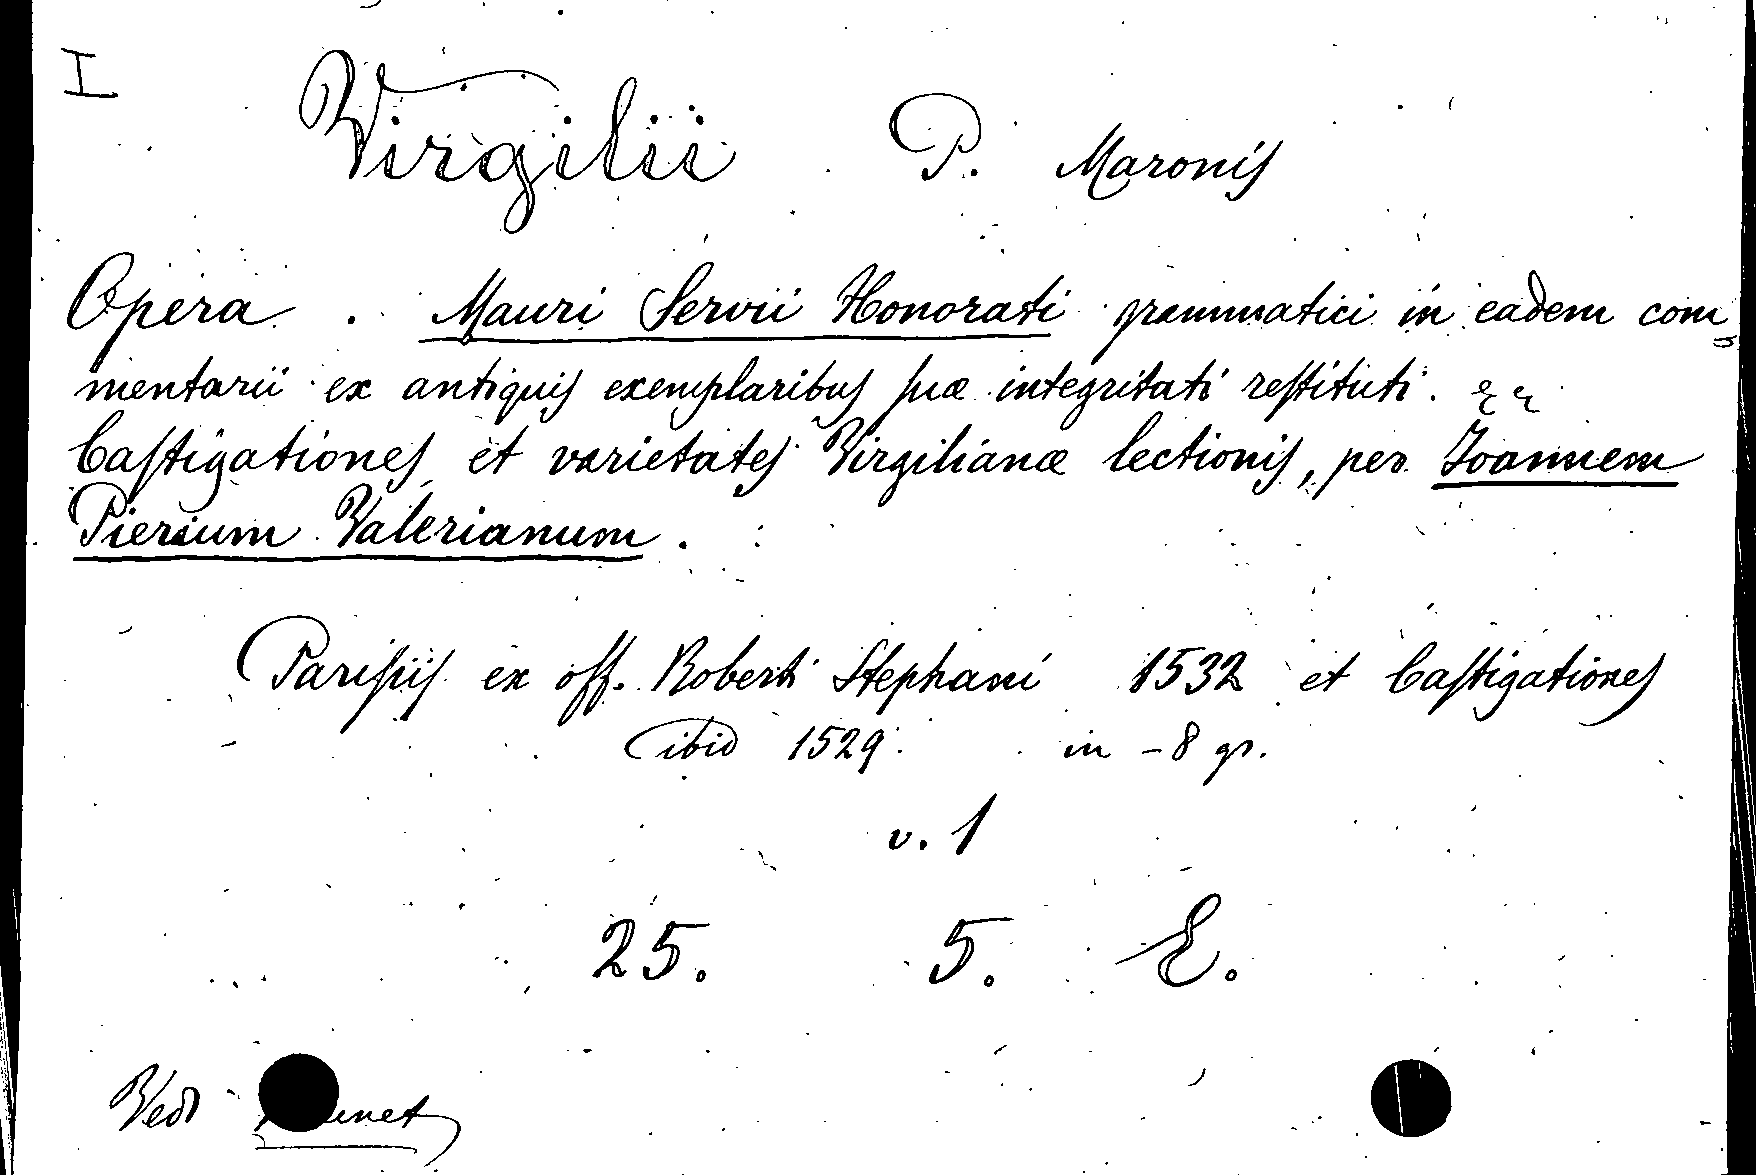 I
Virgilii P. Maronis
Opera. Mauri Servii Honorati grammatici in eadem com=
mentarii ex antiquis exemplaribus suæ integritati restituti.
Castigationes et varietates Virgilianæ lectionis, per Joannem
Pierium Valerianum.
Parisiis ex off. Roberti Stephani 1532 et Castigationes
ibid 1529. in -8 gr.
v. 1
25. 5. E.
Vedi